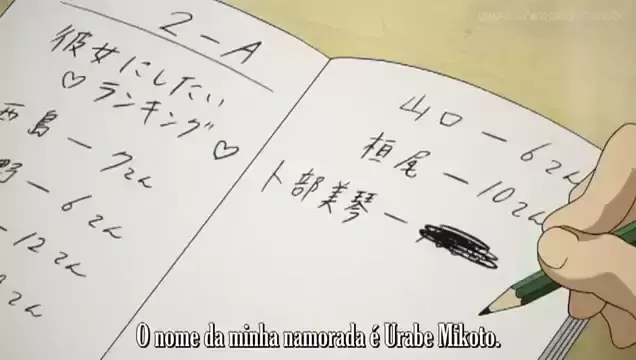 2-A
彼女にしたい
♡ランキング♡
西島 ー 7てん
野 ー 6てん
ー 12てん
てん
山口 ー 6てん
桓尾 ー 10てん
卜部美琴 ー
O nome da minha namorada é Urabe Mikoto.